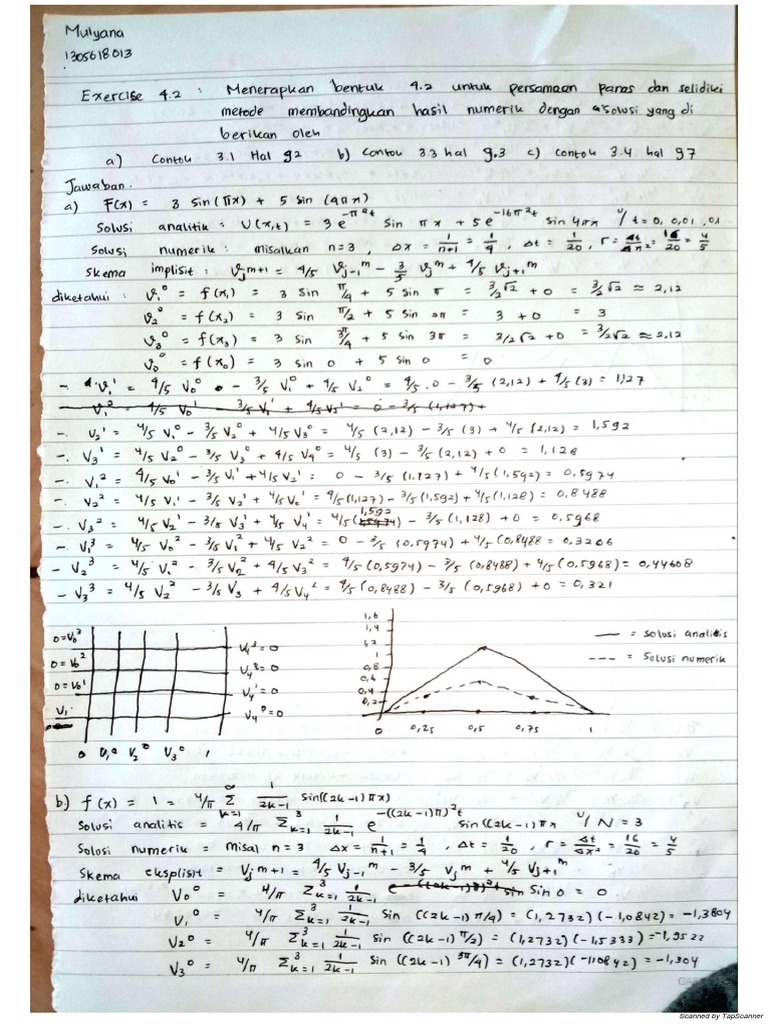 Mulyana
1305618013
Exercise 4.2 : Menerapkan bentuk 4.2 untuk persamaan panas dan selidiki
metode membandingkan hasil numerik dengan solusi yang di
berikan oleh
a) Contoh 3.1 Hal 92 b) Contoh 3.3 hal 9.3 c) contoh 3.4 hal 97
Jawaban.
a) F(x) = 3 sin(πx) + 5 sin(4πx)
Solusi analitik : U(x,t) = 3e^-π²t sin πx + 5e^-16π²t sin 4πx u/ t=0, 0,01, 0,1
Solusi numerik : misalkan n=3, Δx = 1/n+1 = 1/4, Δt = 1/20, r = Δt/Δx² = 16/20 = 4/5
Skema implisit : Vj^m+1 = 4/5 Vj-1^m - 3/5 Vj^m + 4/5 Vj+1^m
diketahui : V1^0 = f(x1) = 3 sin π/4 + 5 sin π = 3/2√2 + 0 = 3/2√2 ≈ 2,12
V2^0 = f(x2) = 3 sin π/2 + 5 sin 2π = 3 + 0 = 3
V3^0 = f(x3) = 3 sin 3π/4 + 5 sin 3π = 3/2√2 + 0 = 3/2√2 ≈ 2,12
V0^0 = f(x0) = 3 sin 0 + 5 sin 0 = 0
-. V1^1 = 4/5 V0^0 - 3/5 V1^0 + 4/5 V2^0 = 4/5 . 0 - 3/5 (2,12) + 4/5 (3) = 1,127
-. V2^1 = 4/5 V1^0 - 3/5 V2^0 + 4/5 V3^0 = 4/5 (2,12) - 3/5 (3) + 4/5 (2,12) = 1,592
-. V3^1 = 4/5 V2^0 - 3/5 V3^0 + 4/5 V4^0 = 4/5 (3) - 3/5 (2,12) + 0 = 1,128
-. V1^2 = 4/5 V0^1 - 3/5 V1^1 + 4/5 V2^1 = 0 - 3/5 (1,127) + 4/5 (1,592) = 0,5974
-. V2^2 = 4/5 V1^1 - 3/5 V2^1 + 4/5 V0^1 = 4/5 (1,127) - 3/5 (1,592) + 4/5 (1,128) = 0,8488
-. V3^2 = 4/5 V2^1 - 3/5 V3^1 + 4/5 V4^1 = 4/5 (1,592) - 3/5 (1,128) + 0 = 0,5968
-. V1^3 = 4/5 V0^2 - 3/5 V1^2 + 4/5 V2^2 = 0 - 3/5 (0,5974) + 4/5 (0,8488 = 0,3206
- V2^3 = 4/5 V1^2 - 3/5 V2^2 + 4/5 V3^2 = 4/5 (0,5974) - 3/5 (0,8488) + 4/5 (0,5968) = 0,44608
- V3^3 = 4/5 V2^2 - 3/5 V3 + 4/5 V4^2 = 4/5 (0,8488) - 3/5 (0,5968) + 0 = 0,321
0=V0^3
0=V0^2
0=V0^1
V1
V4^3=0
V4^2=0
V4^1=0
V4^0=0
0 V1^0 V2^0 V3^0 1
1,6
1,4
1,2
1
0,8
0,6
0,4
0,2
0 0,25 0,5 0,75 1
— = solusi analitis
--- = Solusi numerik
b.) f(x) = 1 = 4/π Σ k=1 ∞ 1/2k-1 sin((2k-1)πx)
Solusi analitis = 4/π Σ k=1 3 1/2k-1 e^-((2k-1)π)²t sin((2k-1)πx u/ N=3
Solusi numerik = misal n=3 Δx = 1/n+1 = 1/4, Δt = 1/20, r = Δt/Δx² = 16/20 = 4/5
Skema eksplisit = Vj^m+1 = 4/5 Vj-1^m - 3/5 Vj^m + 4/5 Vj+1^m
diketahui V0^0 = 4/π Σ k=1 3 1/2k-1 sin 0 = 0
V1^0 = 4/π Σ k=1 3 1/2k-1 sin((2k-1)π/4) = (1,2732)(-1,0842) = -1,3804
V2^0 = 4/π Σ k=1 3 1/2k-1 sin((2k-1)π/2) = (1,2732)(-1,5333) = -1,9522
V3^0 = 4/π Σ k=1 3 1/2k-1 sin((2k-1)3π/4) = (1,2732)(-1,10842) = -1,304
Scanned by TapScanner